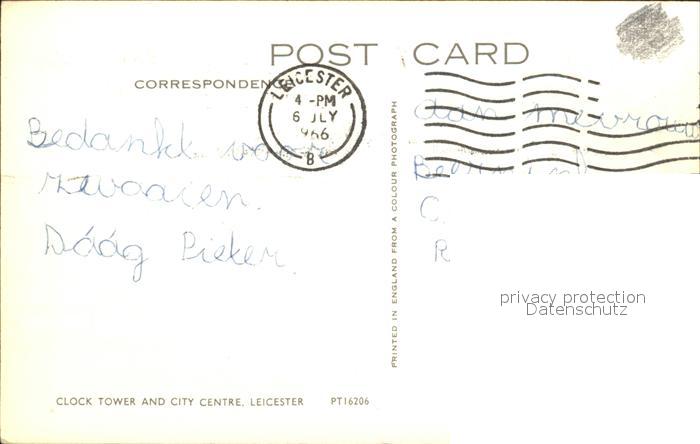 POST CARD
CORRESPONDENCE
LEICESTER
4 - PM
6 JLY
1966
B
Bedankt voor
zwaaien.
Dáág Pieter.
aan mevrouw
C
R
PRINTED IN ENGLAND FROM A COLOUR PHOTOGRAPH
privacy protection
Datenschutz
CLOCK TOWER AND CITY CENTRE, LEICESTER PT16206